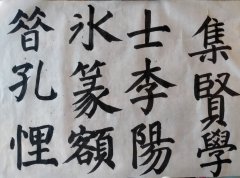 集賢學
士李陽
氷篆額
㫺孔悝